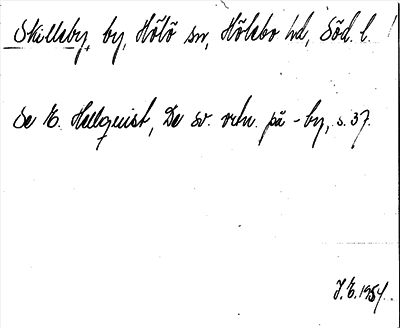 Skilleby, by, Hölö sn, Hölebo hd, Söd. l.
Se E. Hellquist, De sv. ortn. på -by, s. 37.
J.E. 1984.